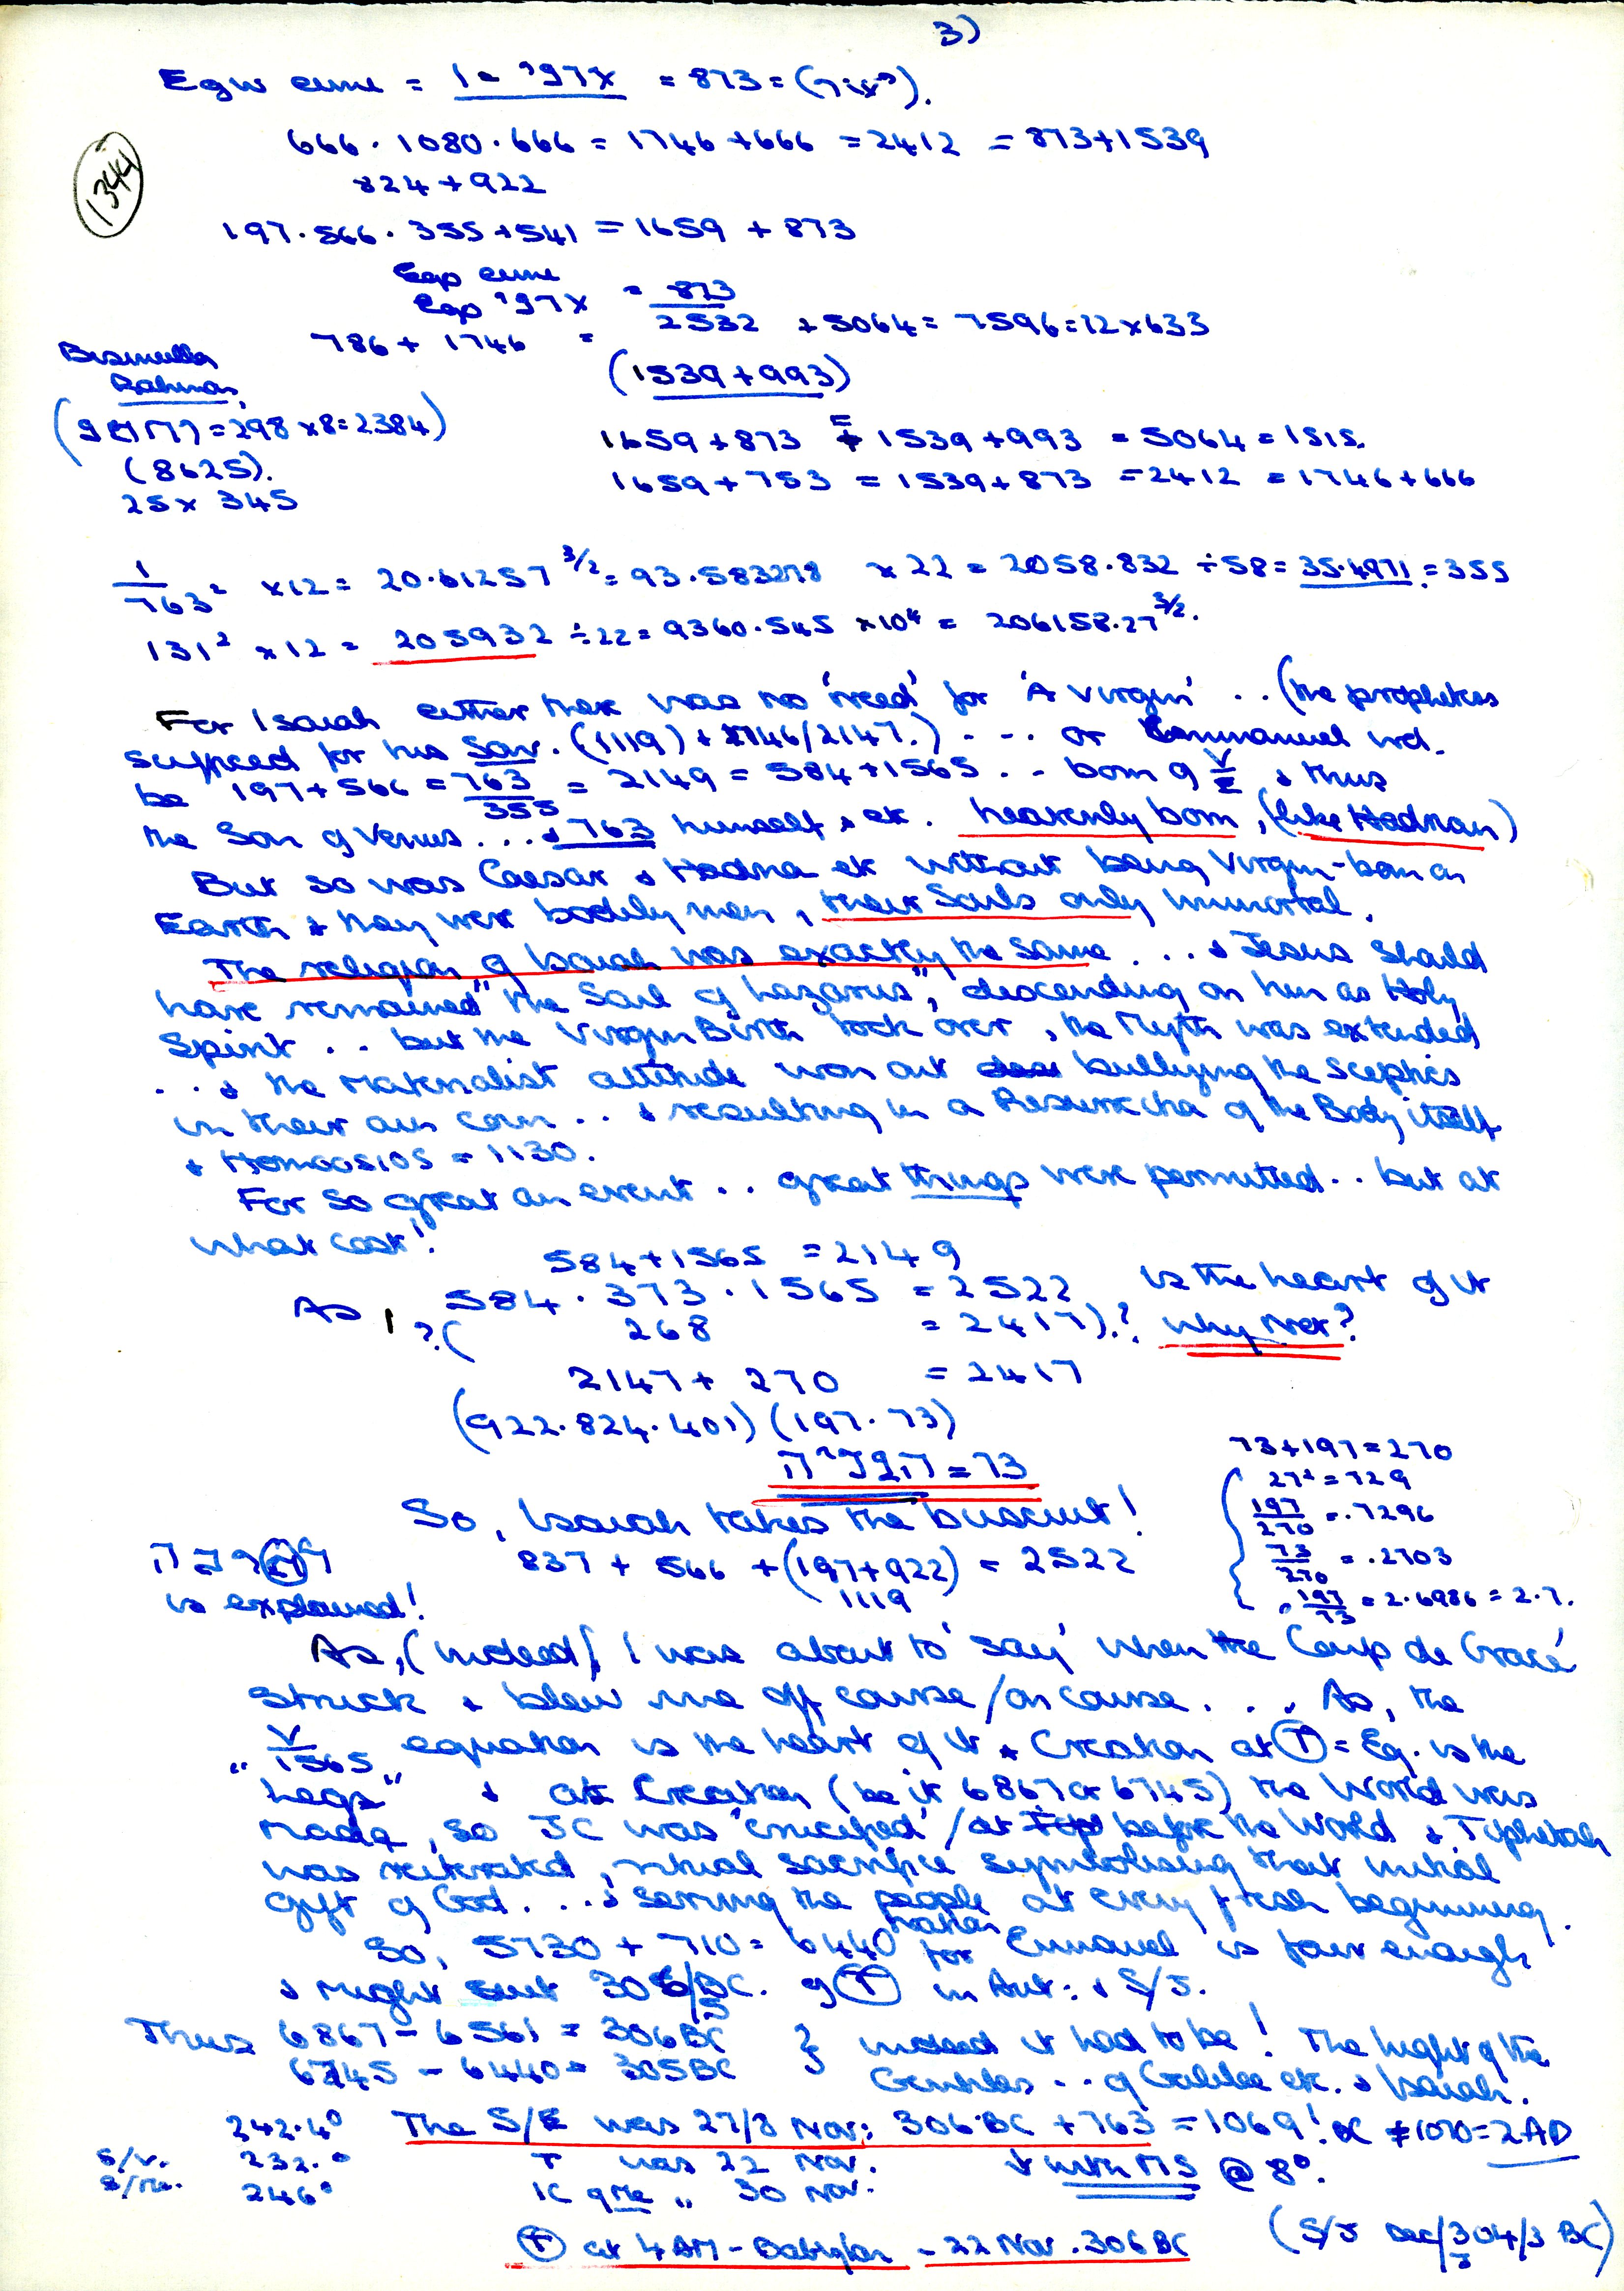 3)
Egw eime = 1 = = 873 =
666 · 1080 · 666 = 1746 + 666 = 2412 = 873 + 1539
1344
824 + 922
197 · 566 · 355 + 541 = 1659 + 873
Ego eime
Ego = 873
2532 + 5064 = 7596 = 12 x 633
786 + 1746 =
Bismulla
Rahman
(1539 + 993)
= 298 x 8 = 2384)
(8625).
25 x 345
1659 + 873 = 1539 + 993 = 5064 = 1515.
1659 + 753 = 1539 + 873 = 2412 = 1746 + 666
1/763² x 12 = 20.61257 3/2 = 93.583278 x 22 = 2058.832 ÷ 58 = 35.4971 = 355
131² x 12 = 205932 ÷ 22 = 9360.545 x 10⁴ = 206158.27 3/2.
For Isaiah either there was no 'need' for 'A Virgin' .. (the prophetess
sufficed for his Son. (1119) + 1746/2147.) ... or Emmanuel wd.
be 197 + 566 = 763/355 = 2149 = 584 + 1565 .. born of V/E & thus
the Son of Venus ... & 763 himself, & etc. heavenly born, (like Hadrian)
But so was Caesar & etc without being Virgin-born on
Earth & they were bodily men, their Souls only immortal.
The religion of Isaiah was exactly the same ... & Jesus should
have remained "the Soul of Lazarus", descending on him as Holy
Spirit .. but the Virgin Birth took over, the Myth was extended
... & the materialist attitude won out bullying the sceptics
in their own coin .. & resulting in a Resurrection of the Body itself
& Homoosios = 1130.
For so great an event .. great things were permitted .. but at
what cost!
584 + 1565 = 2149
As, 584 · 373 · 1565 = 2522 is the heart of it
?( 268 = 2417).? why not?
2147 + 270 = 2417
(922 · 824 · 401) (197 · 73)
= 73
73 + 197 = 270
27² = 729
197/270 = .7296
73/270 = .2703
, 197/73 = 2.6986 = 2.7.
So, Isaiah takes the biscuit!
837 + 566 + (197 + 922) = 2522
1119
is explained!
As, (indeed), I was about to 'say' when the 'Coup de Grace'
struck & blew me off course/on course ... As, the
" V/1565 equation is the heart of it & Creation at (T) = Eq. is the
legs" & at Creation (be it 6867 or 6745) the World was
made, so JC was 'crucified' / at before the World & Tiphetah
was reiterated, ritual sacrifice symbolising that initial
gift of God ... & serving the people at every fresh beginning.
So, 5730 + 710 = 6440 rather for Emmanuel is fair enough
& might suit 306/5 BC. of (T) in Aut: & S/J.
Thus 6867 - 6561 = 306 BC } indeed it had to be! The light of the
6745 - 6440 = 305 BC } Gentiles .. of Galilee etc. & Isaiah.
242.4° The S/E was 27/8 Nov: 306 BC + 763 = 1069! or ≠ 1070 = 2 AD
S/V. 232.° T was 22 Nov. & with MS @ 8°.
S/Me. 246° IC of Me " 30 Nov.
(T) at 4 AM - Babylon - 22 Nov. 306 BC (S/J Dec/304/3 BC)